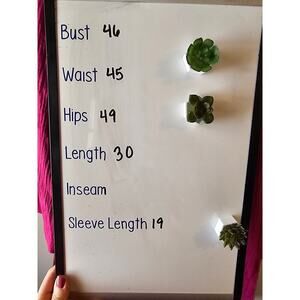 Bust 46
Waist 45
Hips 49
Length 30
Inseam
Sleeve Length 19